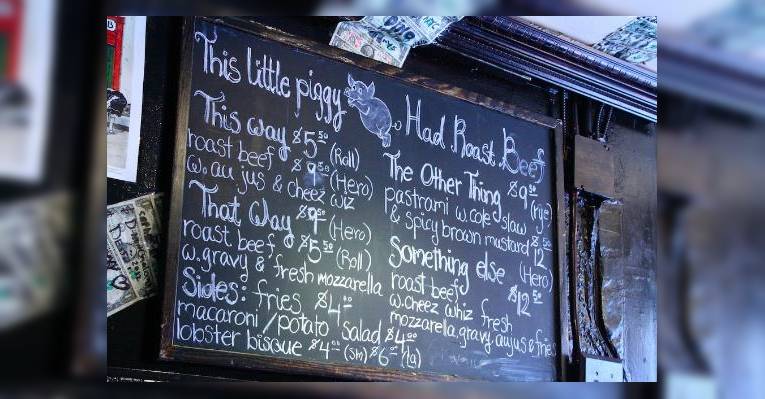 This little piggy
Had Roast Beef
This way $5.50 (Roll)
roast beef $9.50 (Hero)
w. au jus & cheez wiz
That Way $9.50 (Hero)
roast beef $5.50 (Roll)
w. gravy & fresh mozzarella
Sides: fries $4.00
macaroni/potato salad $4.00
lobster bisque $4.00 (sm) $6.00 (lg)
The Other Thing $9.50 (rye)
pastrami w. cole slaw $12.50 (Hero)
& spicy brown mustard
Something else $12.50
roast beef
w. cheez whiz fresh
mozzarella, gravy, au jus & fries